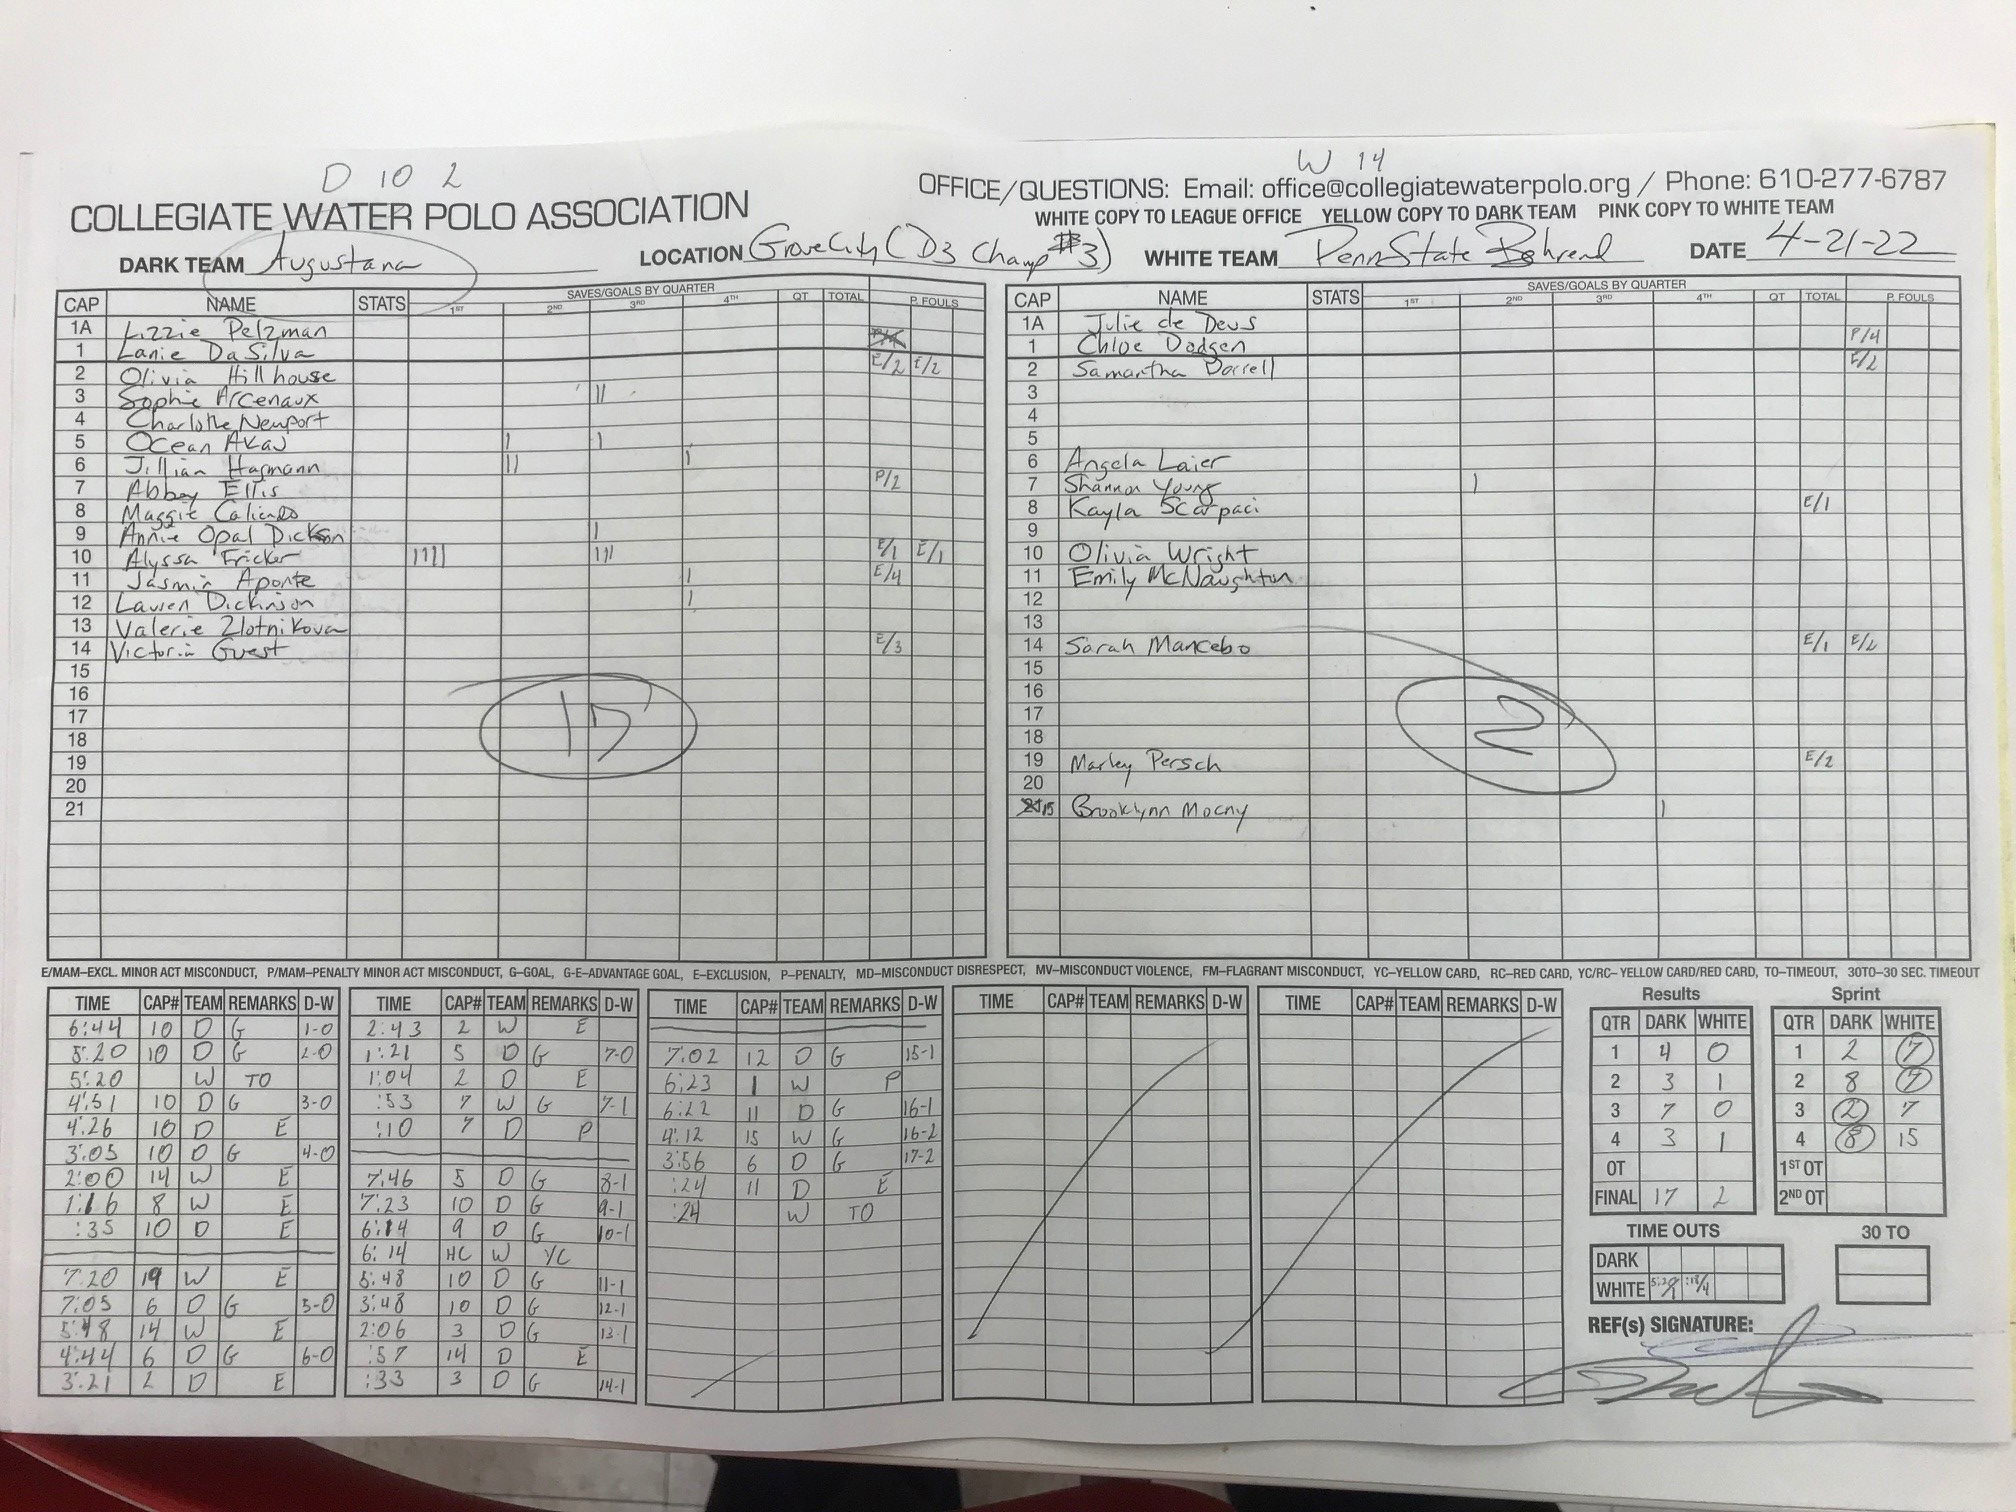 D 10 2
W 14
COLLEGIATE WATER POLO ASSOCIATION
OFFICE/QUESTIONS: Email: office@collegiatewaterpolo.org / Phone: 610-277-6787
WHITE COPY TO LEAGUE OFFICE YELLOW COPY TO DARK TEAM PINK COPY TO WHITE TEAM
DARK TEAM Augustana LOCATION Grove City (D3 Champ #3) WHITE TEAM Penn State Behrend DATE 4-21-22
CAP NAME STATS SAVES/GOALS BY QUARTER 1ST 2ND 3RD 4TH QT TOTAL P. FOULS
1A Lizzie Pelzman
1 Lanie DaSilva
2 Olivia Hillhouse E/2 E/2
3 Sophie Arcenaux ||
4 Charlotte Newport
5 Ocean Akau | |
6 Jillian Hagmann || |
7 Abbey Ellis P/2
8 Maggie Caliendo
9 Annie Opal Dickson |
10 Alyssa Fricker |||| ||| E/1 E/1
11 Jasmin Aponte | E/4
12 Lauren Dickinson |
13 Valerie Zlotnikova
14 Victoria Guest E/3
15
16
17
18
19
20
21
17
CAP NAME STATS SAVES/GOALS BY QUARTER 1ST 2ND 3RD 4TH QT TOTAL P. FOULS
1A Julie de Deus
1 Chloe Dodgen P/4
2 Samantha Dorrell E/2
3
4
5
6 Angela Laier
7 Shannon Young |
8 Kayla Scarpaci E/1
9
10 Olivia Wright
11 Emily McNaughton
12
13
14 Sarah Mancebo E/1 E/2
15
16
17
18
19 Marley Persch E/2
20
21 15 Brooklynn Mocny |
2
E/MAM–EXCL. MINOR ACT MISCONDUCT, P/MAM–PENALTY MINOR ACT MISCONDUCT, G–GOAL, G-E–ADVANTAGE GOAL, E–EXCLUSION, P–PENALTY, MD–MISCONDUCT DISRESPECT, MV–MISCONDUCT VIOLENCE, FM–FLAGRANT MISCONDUCT, YC–YELLOW CARD, RC–RED CARD, YC/RC–YELLOW CARD/RED CARD, TO–TIMEOUT, 30TO–30 SEC. TIMEOUT
TIME CAP# TEAM REMARKS D-W
6:44 10 D G 1-0
5:20 10 D G 2-0
5:20 W TO
4:51 10 D G 3-0
4:26 10 D E
3:05 10 D G 4-0
2:00 14 W E
1:16 8 W E
:35 10 D E
7:20 19 W E
7:05 6 D G 5-0
5:48 14 W E
4:44 6 D G 6-0
3:21 2 D E
TIME CAP# TEAM REMARKS D-W
2:43 2 W E
1:21 5 D G 7-0
1:04 2 D E
:53 7 W G 7-1
:10 7 D P
7:46 5 D G 8-1
7:23 10 D G 9-1
6:14 9 D G 10-1
6:14 HC W YC
5:48 10 D G 11-1
3:48 10 D G 12-1
2:06 3 D G 13-1
:57 14 D E
:33 3 D G 14-1
TIME CAP# TEAM REMARKS D-W
7:02 12 D G 15-1
6:23 1 W P
6:22 11 D G 16-1
4:12 15 W G 16-2
3:56 6 D G 17-2
:24 11 D E
:24 W TO
TIME CAP# TEAM REMARKS D-W
TIME CAP# TEAM REMARKS D-W
Results
QTR DARK WHITE
1 4 0
2 3 1
3 7 0
4 3 1
OT
FINAL 17 2
Sprint
QTR DARK WHITE
1 2 7
2 8 7
3 2 7
4 8 15
1ST OT
2ND OT
TIME OUTS
DARK
WHITE 5:20/1
30 TO
REF(s) SIGNATURE: